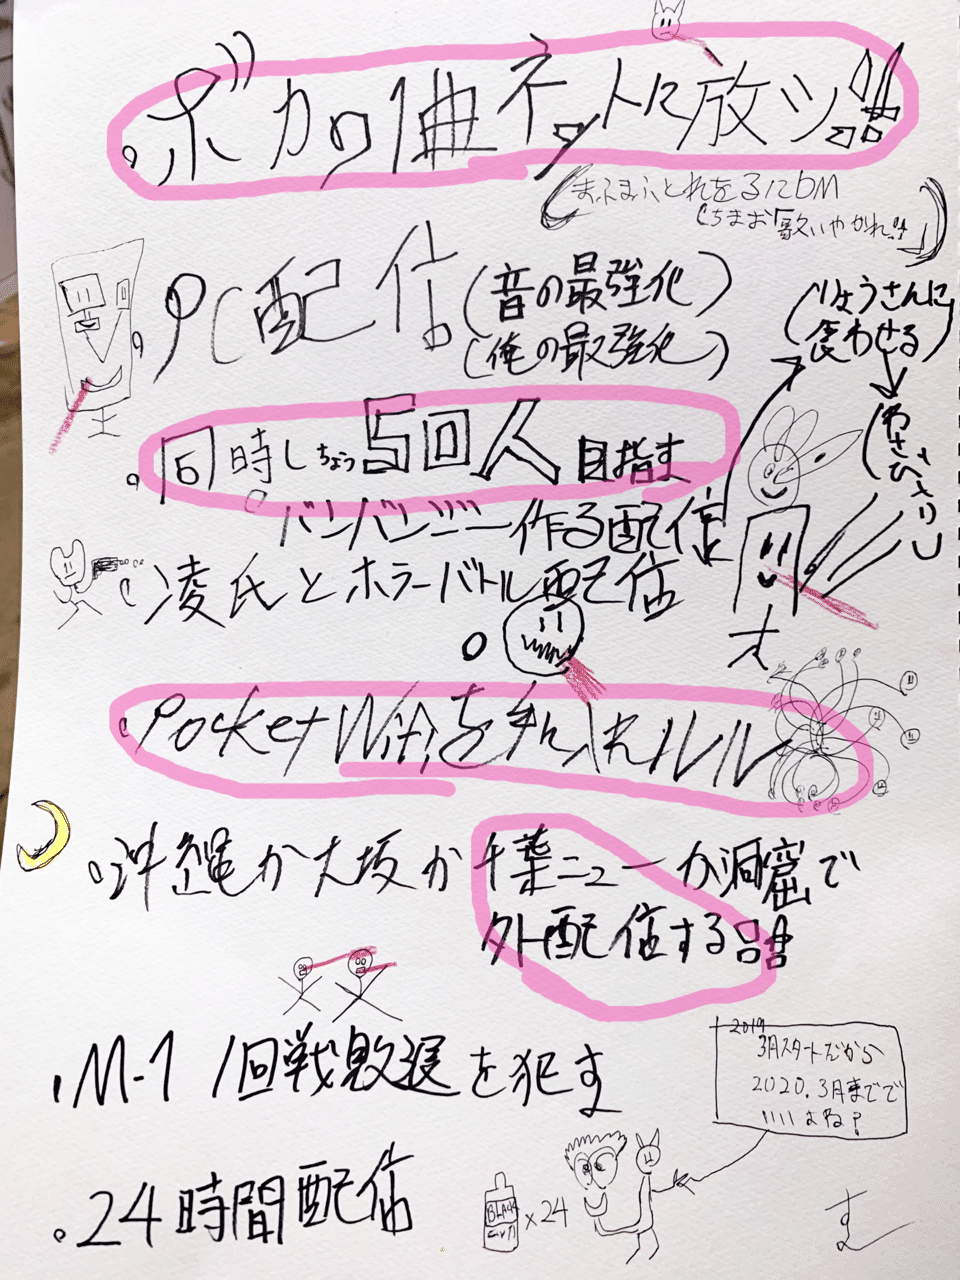 ・ボカロ曲ネットに放ツ!!
(まふまふとれをるにDM
しちまお「歌いやがれ!!」)
・PC配信(音の最強化)
(俺の最強化)
(りょうさんに
食わせる)
(わさび入り)
・同時しちょう50人目指す
。バンバンジー作る配信
・凌氏とホラーバトル配信
・Pocket Wifiを手に入れルル
・沖縄か大坂か千葉ニューか洞窟で
外配信する!!
・M-1 1回戦敗退を犯す
2019
3月スタートだから
2020.3月までで
いいよね?
・24時間配信
BLACK
×24
す